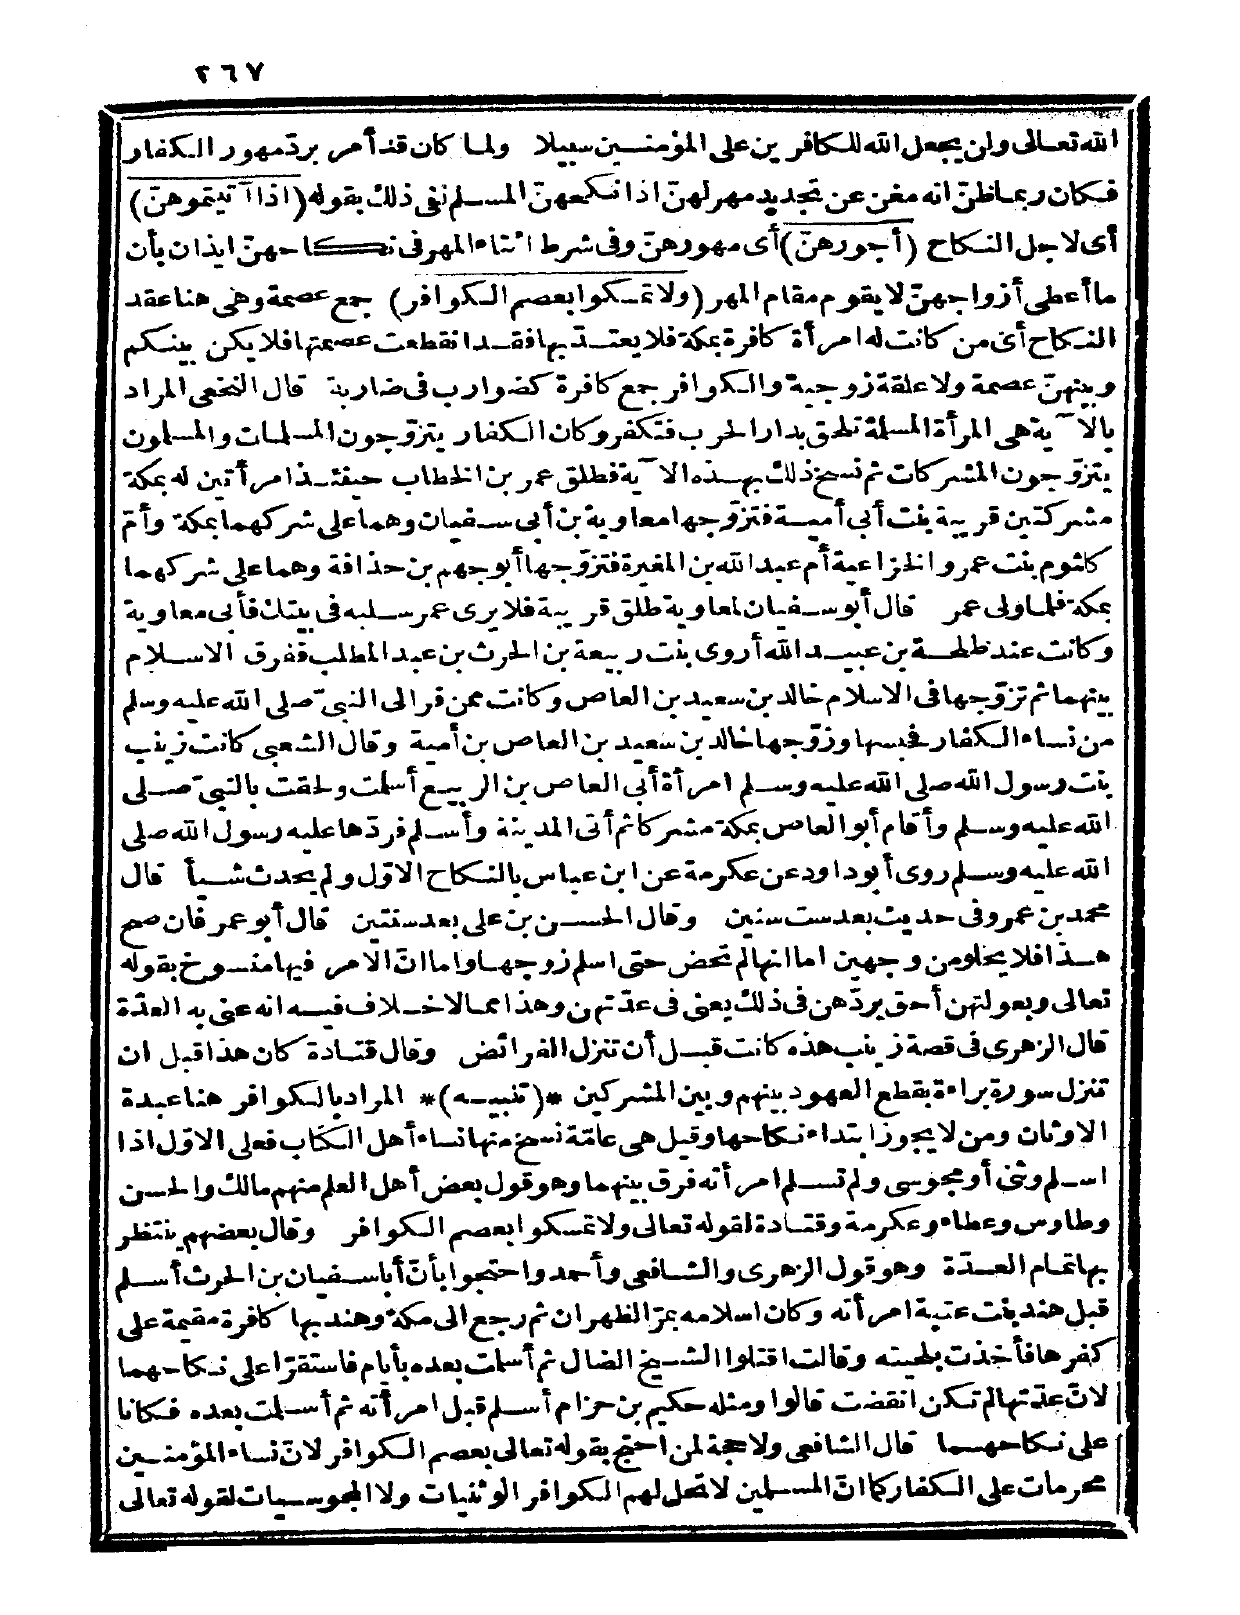 ٢٦٧
الله تعالى ولن يجعل الله للكافرين على المؤمنين سبيلا ولما كان قد أمر بردّ مهور الكفار
فكان ربما ظنّ انه مغن عن تجديد مهر لهنّ اذا نكحهنّ المسلم نفى ذلك بقوله (اذا آتيتموهنّ)
أى لاجل النكاح (أجورهنّ) أى مهورهنّ وفى شرط ايتاء المهر فى نكاحهنّ ايذان بأن
ما أعطى أزواجهنّ لا يقوم مقام المهر (ولا تمسكوا بعصم الكوافر) جمع عصمة وهى هنا عقد
النكاح أى من كانت له امرأة كافرة بمكة فلا يعتدّ بها فقد انقطعت عصمتها فلا يكن بينكم
وبينهنّ عصمة ولا علقة زوجية والكوافر جمع كافرة كضوارب فى ضاربة قال النخعى المراد
بالآية هى المرأة المسلمة تلحق بدار الحرب فتكفر وكان الكفار يتزوّجون المسلمات والمسلمون
يتزوّجون المشركات ثم نسخ ذلك بهذه الآية فطلق عمر بن الخطاب حينئذ امرأتين له بمكة
مشركتين قريبة بنت أبى أمية فتزوّجها معاوية بن أبى سفيان وهما على شركهما بمكة وأمّ
كلثوم بنت عمرو الخزاعية أم عبد الله بن المغيرة فتزوّجها أبو جهم بن حذافة وهما على شركهما
بمكة فلما ولى عمر قال أبو سفيان لمعاوية طلق قريبة فلا يرى عمر سلبه فى بيتك فأبى معاوية
وكانت عند طلحة بن عبيد الله أروى بنت ربيعة بن الحرث بن عبد المطلب ففرق الاسلام
بينهما ثم تزوّجها فى الاسلام خالد بن سعيد بن العاص وكانت ممن فر الى النبىّ صلى الله عليه وسلم
من نساء الكفار فحبسها وزوّجها خالد بن سعيد بن العاص بن أمية وقال الشعبى كانت زينب
بنت رسول الله صلى الله عليه وسلم امرأة أبى العاص بن الربيع أسلمت ولحقت بالنبىّ صلى
الله عليه وسلم وأقام أبو العاص بمكة مشركا ثم أتى المدينة وأسلم فردّها عليه رسول الله صلى
الله عليه وسلم روى أبو داود عن عكرمة عن ابن عباس بالنكاح الاوّل ولم يحدث شيأ قال
محمد بن عمر وفى حديث بعد ست سنين وقال الحسن بن على بعد سنتين قال أبو عمر فان صح
هذا فلا يخلو من وجهين اما انها لم تحض حتى اسلم زوجها واما انّ الامر فيها منسوخ بقوله
تعالى وبعولتهن أحق بردّهن فى ذلك يعنى فى عدّتهن وهذا مما لا خلاف فيه انه عنى به العدّة
قال الزهرى فى قصة زينب هذه كانت قبل أن تنزل الفرائض وقال قتادة كان هذا قبل ان
تنزل سورة براءة بقطع العهود بينهم وبين المشركين *(تنبيه)* المراد بالكوافر هنا عبدة
الاوثان ومن لا يجوز ابتداء نكاحها وقيل هى عامّة نسخ منها نساء أهل الكتاب فعلى الاوّل اذا
اسلم وثنى أو مجوسى ولم تسلم امرأته فرق بينهما وهو قول بعض أهل العلم منهم مالك والحسن
وطاوس وعطاء وعكرمة وقتادة لقوله تعالى ولا تمسكوا بعصم الكوافر وقال بعضهم ينتظر
بها تمام العدّة وهو قول الزهرى والشافعى وأحمد واحتجوا بأنّ أبا سفيان بن الحرث أسلم
قبل هند بنت عتبة امرأته وكان اسلامه بمرّ الظهران ثم رجع الى مكة وهند بها كافرة مقيمة على
كفرها فأخذت بلحيته وقالت اقتلوا الشيخ الضال ثم أسلمت بعده بأيام فاستقرّا على نكاحهما
لانّ عدّتها لم تكن انقضت قالوا ومثله حكيم بن حزام أسلم قبل امرأته ثم أسلمت بعده فكانا
على نكاحهما قال الشافعى ولا حجة لمن احتج بقوله تعالى بعصم الكوافر لانّ نساء المؤمنين
محرمات على الكفار كما انّ المسلمين لا تحل لهم الكوافر الوثنيات ولا المجوسيات لقوله تعالى